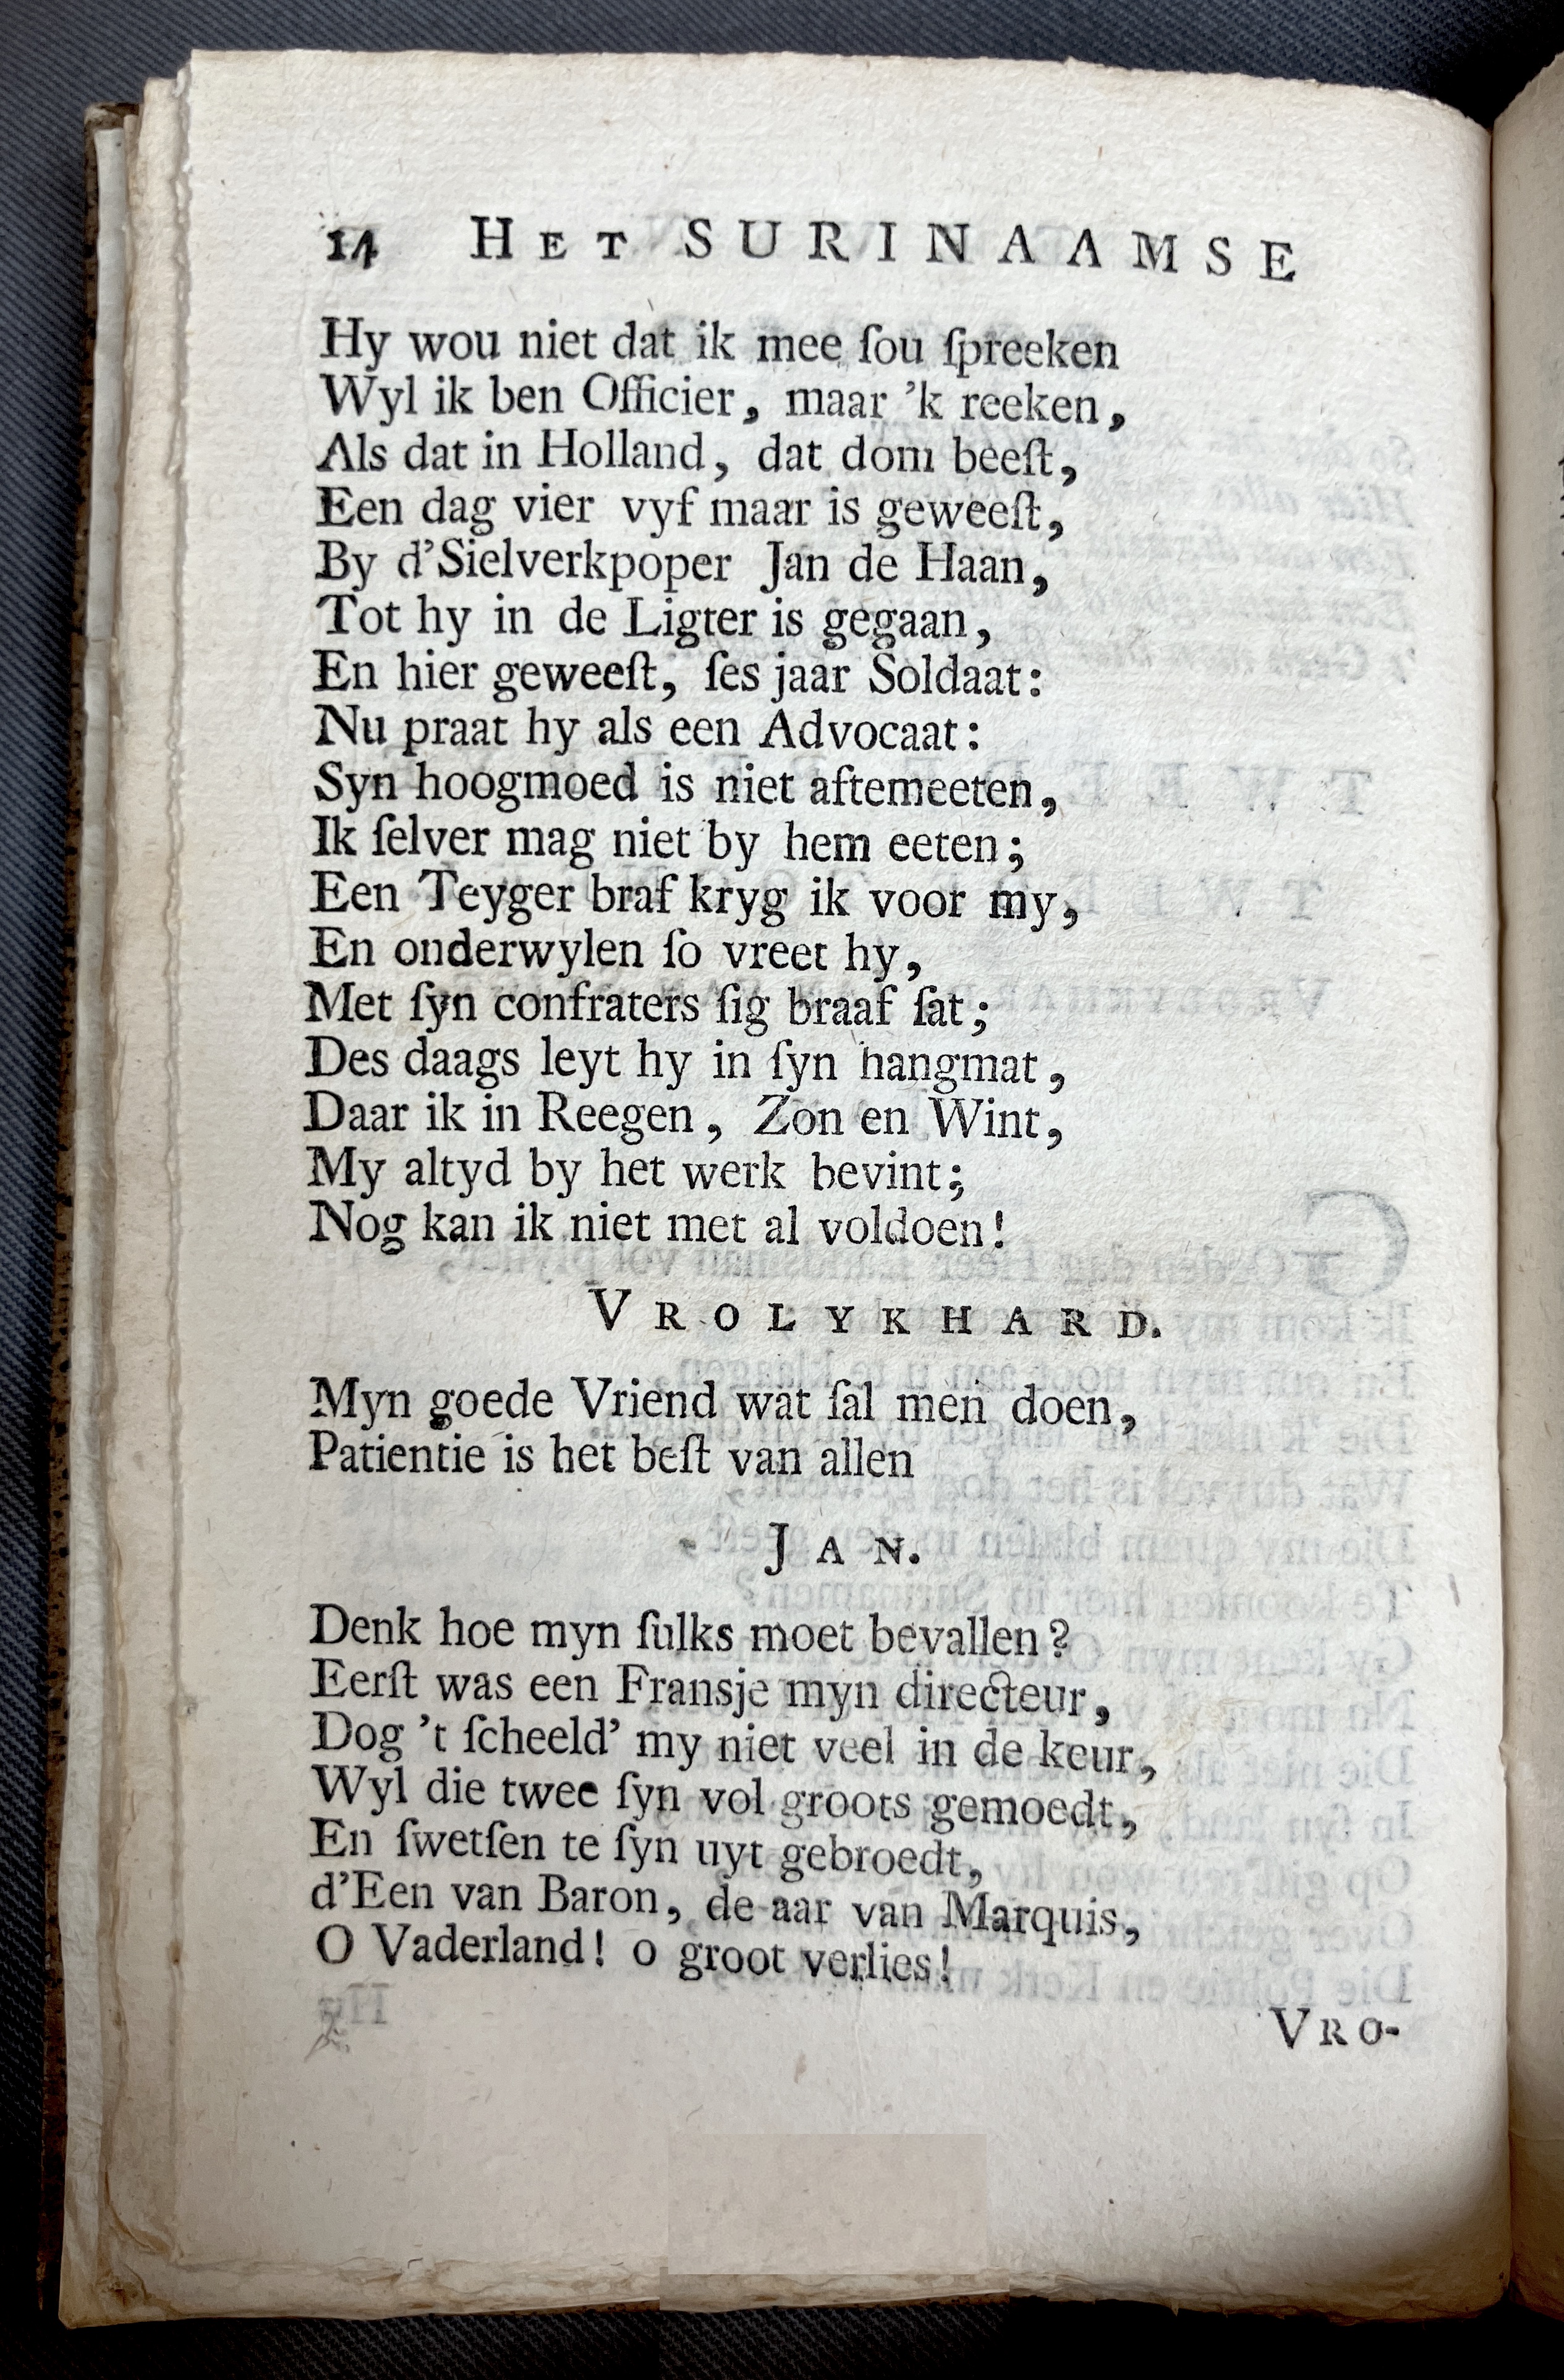 14 HET SURINAAMSE
Hy wou niet dat ik mee ſou ſpreeken
Wyl ik ben Officier, maar 'k reeken,
Als dat in Holland, dat dom beeſt,
Een dag vier vyf maar is geweeſt,
By d'Sielverkpoper Jan de Haan,
Tot hy in de Ligter is gegaan,
En hier geweeſt, ſes jaar Soldaat:
Nu praat hy als een Advocaat:
Syn hoogmoed is niet aftemeeten,
Ik ſelver mag niet by hem eeten;
Een Teyger braf kryg ik voor my,
En onderwylen ſo vreet hy,
Met ſyn confraters ſig braaf ſat;
Des daags leyt hy in ſyn hangmat,
Daar ik in Reegen, Zon en Wint,
My altyd by het werk bevint;
Nog kan ik niet met al voldoen!
VROLYKHARD.
Myn goede Vriend wat ſal men doen,
Patientie is het beſt van allen
JAN.
Denk hoe myn ſulks moet bevallen?
Eerſt was een Fransje myn directeur,
Dog 't ſcheeld' my niet veel in de keur,
Wyl die twee ſyn vol groots gemoedt,
En ſwetſen te ſyn uyt gebroedt,
d'Een van Baron, de aar van Marquis,
O Vaderland! o groot verlies!
VRO-